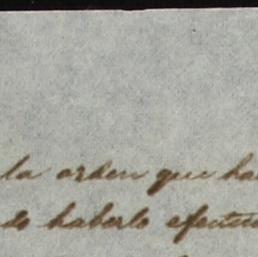 la orden que ha
do haberlo efectu